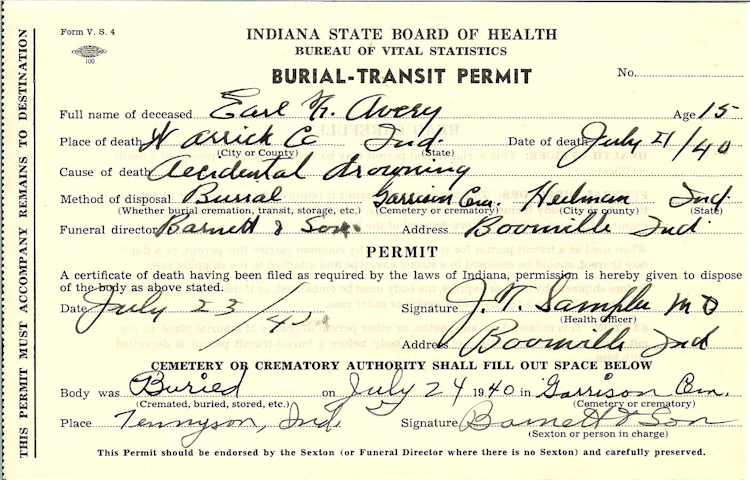 Form V. S. 4
INDIANA STATE BOARD OF HEALTH
BUREAU OF VITAL STATISTICS
100
BURIAL-TRANSIT PERMIT
No.
Full name of deceased Earl F. Avery Age 15
Place of death Warrick Co Ind.
(City or County) (State)
Date of death July 21/40
Cause of death Accidental drowning
Method of disposal Burial Garrison Cem. Heilman Ind
(Whether burial cremation, transit, storage, etc.) (Cemetery or crematory) (City or county) (State)
Funeral director Barnett & Son. Address Boonville Ind.
PERMIT
A certificate of death having been filed as required by the law of Indiana, permission is hereby given to dispose
of the body as above stated.
Date July 23/40 Signature J. T. Samples MD
(Health Officer)
Address Boonville Ind
CEMETERY OR CREMATORY AUTHORITY SHALL FILL OUT SPACE BELOW
Body was Buried on July 24 1940 in Garrison Cem.
(Cremated, buried, stored, etc.) (Cemetery or crematory)
Place Tennyson, Ind. Signature Barnett & Son
(Sexton or person in charge)
This Permit should be endorsed by the Sexton (or Funeral Director where there is no Sexton) and carefully preserved.
THIS PERMIT MUST ACCOMPANY REMAINS TO DESTINATION